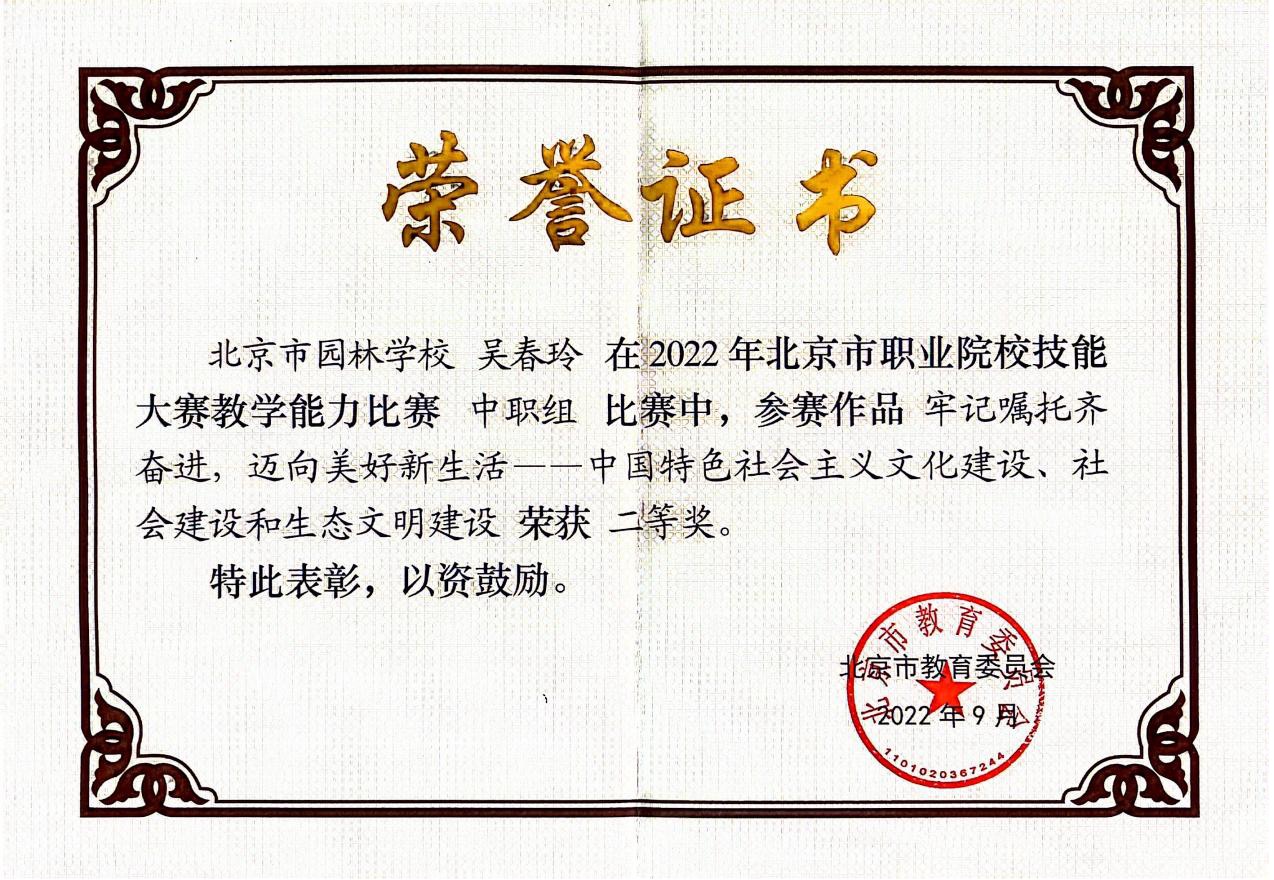 荣誉证书
北京市园林学校 吴春玲 在2022年北京市职业院校技能
大赛教学能力比赛 中职组 比赛中，参赛作品 牢记嘱托齐
奋进，迈向美好新生活——中国特色社会主义文化建设、社
会建设和生态文明建设 荣获 二等奖。
特此表彰，以资鼓励。
北京市教育委员会
北京市教育委员会
2022年9月
1101020367244